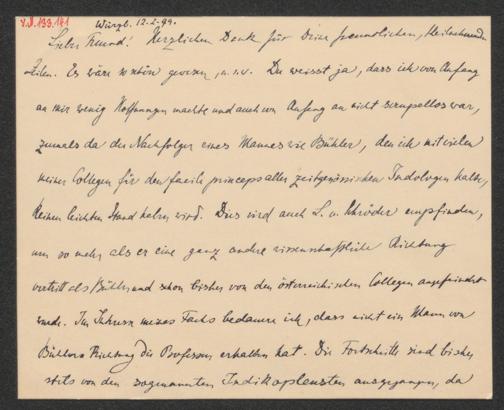 Würzb. 12.2.99.
Lieber Freund! Herzlichen Dank für Deine freundlichen, theilnehmenden
Zeilen. Es wäre so schön gewesen, u.s.w. Du weisst ja, dass ich von Anfang
an mir wenig Hoffnungen machte und auch von Anfang an nicht scrupellos war,
zumal da der Nachfolger eines Mannes wie Bühler, den ich mit vielen
meiner Collegen für den facile princeps aller zeitgenössischen Indologen halte,
keinen leichten Stand haben wird. Dies wird auch L. v. Schröder empfinden,
um so mehr als er eine ganz andre wissenschaftliche Richtung
vertritt als Bühler und schon bisher von den österreichischen Collegen angefeindet
wurde. Im Interesse meines Fachs bedaure ich, dass nicht ein Mann von
Bühlers Richtung die Professur erhalten hat. Die Fortschritte sind bisher
stets von den sogenannten Indikopleusten ausgegangen, da